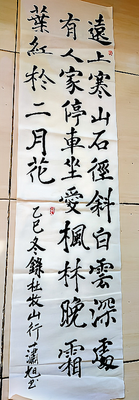 遠上寒山石徑斜白雲深處
有人家停車坐愛楓林晚霜
葉紅於二月花
乙巳冬錄杜牧山行 瀟旭書